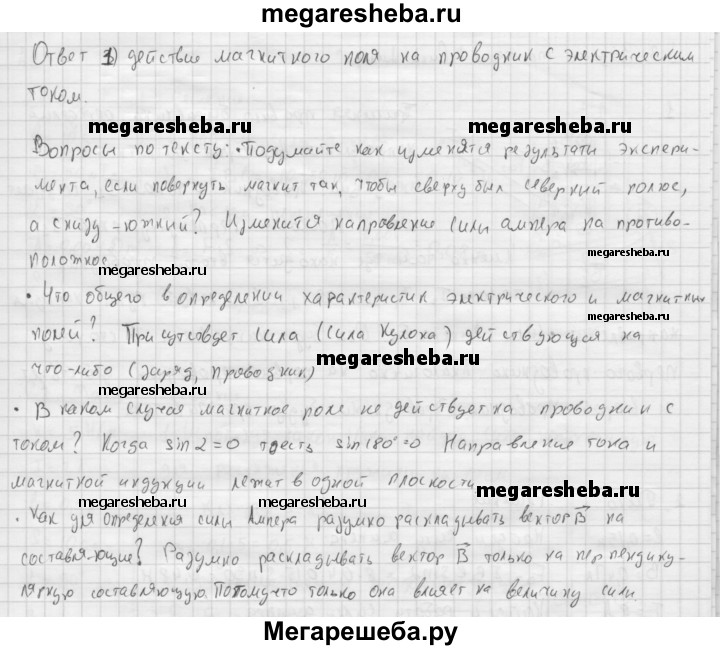 megaresheba.ru
Ответ 1) действие магнитного поля на проводник с электрическим
током.
megaresheba.ru
megaresheba.ru
Вопросы по тексту: • Подумайте как изменятся результаты экспери-
мента, если повернуть магнит так, чтобы сверху был северный полюс,
а снизу - южный? Изменится направление силы ампера на противо-
положное
megaresheba.ru
megaresheba.ru
• Что общего в определении характеристик электрического и магнитных
megaresheba.ru
полей? Присутствует сила (сила Кулона) действующая на
megaresheba.ru
что-либо (заряд, проводник)
megaresheba.ru
• В каком случае магнитное поле не действует на проводник с
током? Когда sin 2 = 0 тоесть sin 180° = 0 Направление тока и
магнитной индукции лежит в одной плоскости
megaresheba.ru
megaresheba.ru megaresheba.ru
• Как для определения силы Ампера разумно раскладывать вектор B на
составляющие? Разумно раскладывать вектор B только на перпендику-
лярную составляющую. Потомучто только она влияет на величину силы
Мегарешеба.ру